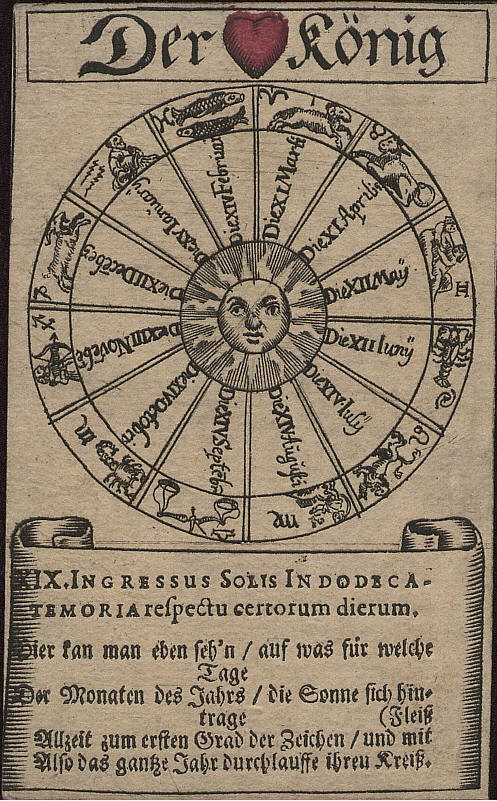 Der König
Die XI Martij
Die XI Aprilis
Die XII Maÿ
Die XII Iunÿ
Die XIV Iulÿ
Die XIV Augusti
Die XIV Septeb
Die XIV Octobr
Die XIII Novebr
Die XII Decēbr
Die XI Ianuarÿ
Die XIV Februarij
XIX. INGRESSUS SOLIS IN DODECA-
TEMORIA respectu certorum dierum.
Hier kan man eben seh'n / auf was für welche
Tage
Der Monaten des Jahrs / die Sonne sich hin-
trage (Fleiß
Allzeit zum ersten Grad der Zeichen / und mit
Also das gantze Jahr durchlauffe ihren Kreiß.